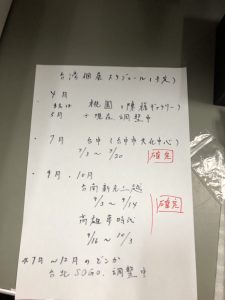 台湾個展スケジュール(予定)
4月
または 桃園(陳程ギャラリー)
5月 → 現在調整中
・7月 台中(台中市文化中心)
7/2 〜 7/20 確定
・9月、10月
台南新光三越
9/3 〜 9/14
確定
高雄夢時代
9/16 〜 10/3
※9月〜12月のどこか
台北SOGO、調整中